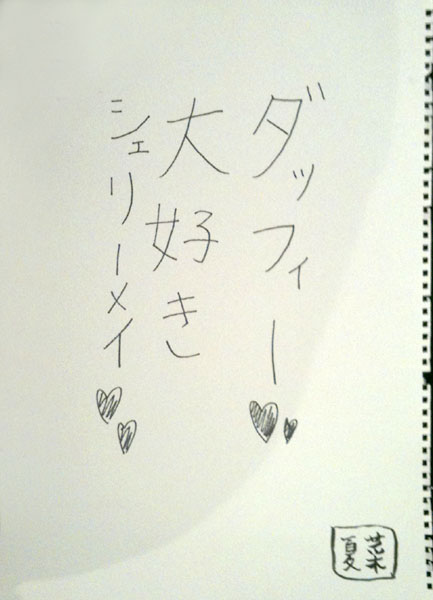 ダッフィー
大好き
シェリーメイ
菜夏